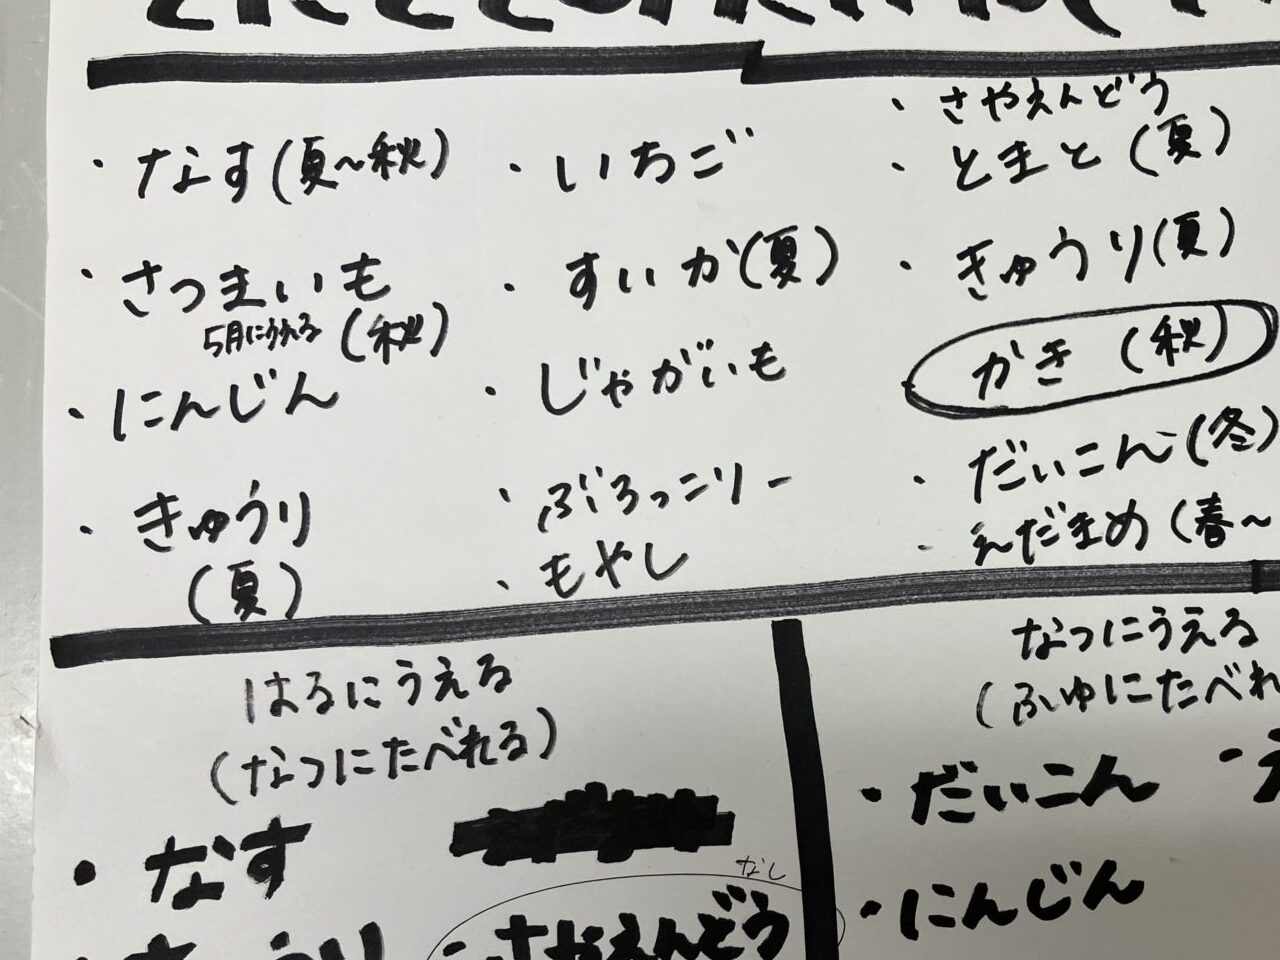 ・なす(夏～秋)
・さつまいも
5月にうえる (秋)
・にんじん
・きゅうり
(夏)
・いちご
・すいか(夏)
・じゃがいも
・ぶろっこりー
・もやし
・さやえんどう
・とまと(夏)
・きゅうり(夏)
かき(秋)
・だいこん(冬)
・えだまめ(春～
はるにうえる
(なつにたべれる)
・なす
なし
・さやえんどう
なつにうえる
(ふゆにたべれ
・だいこん
・にんじん